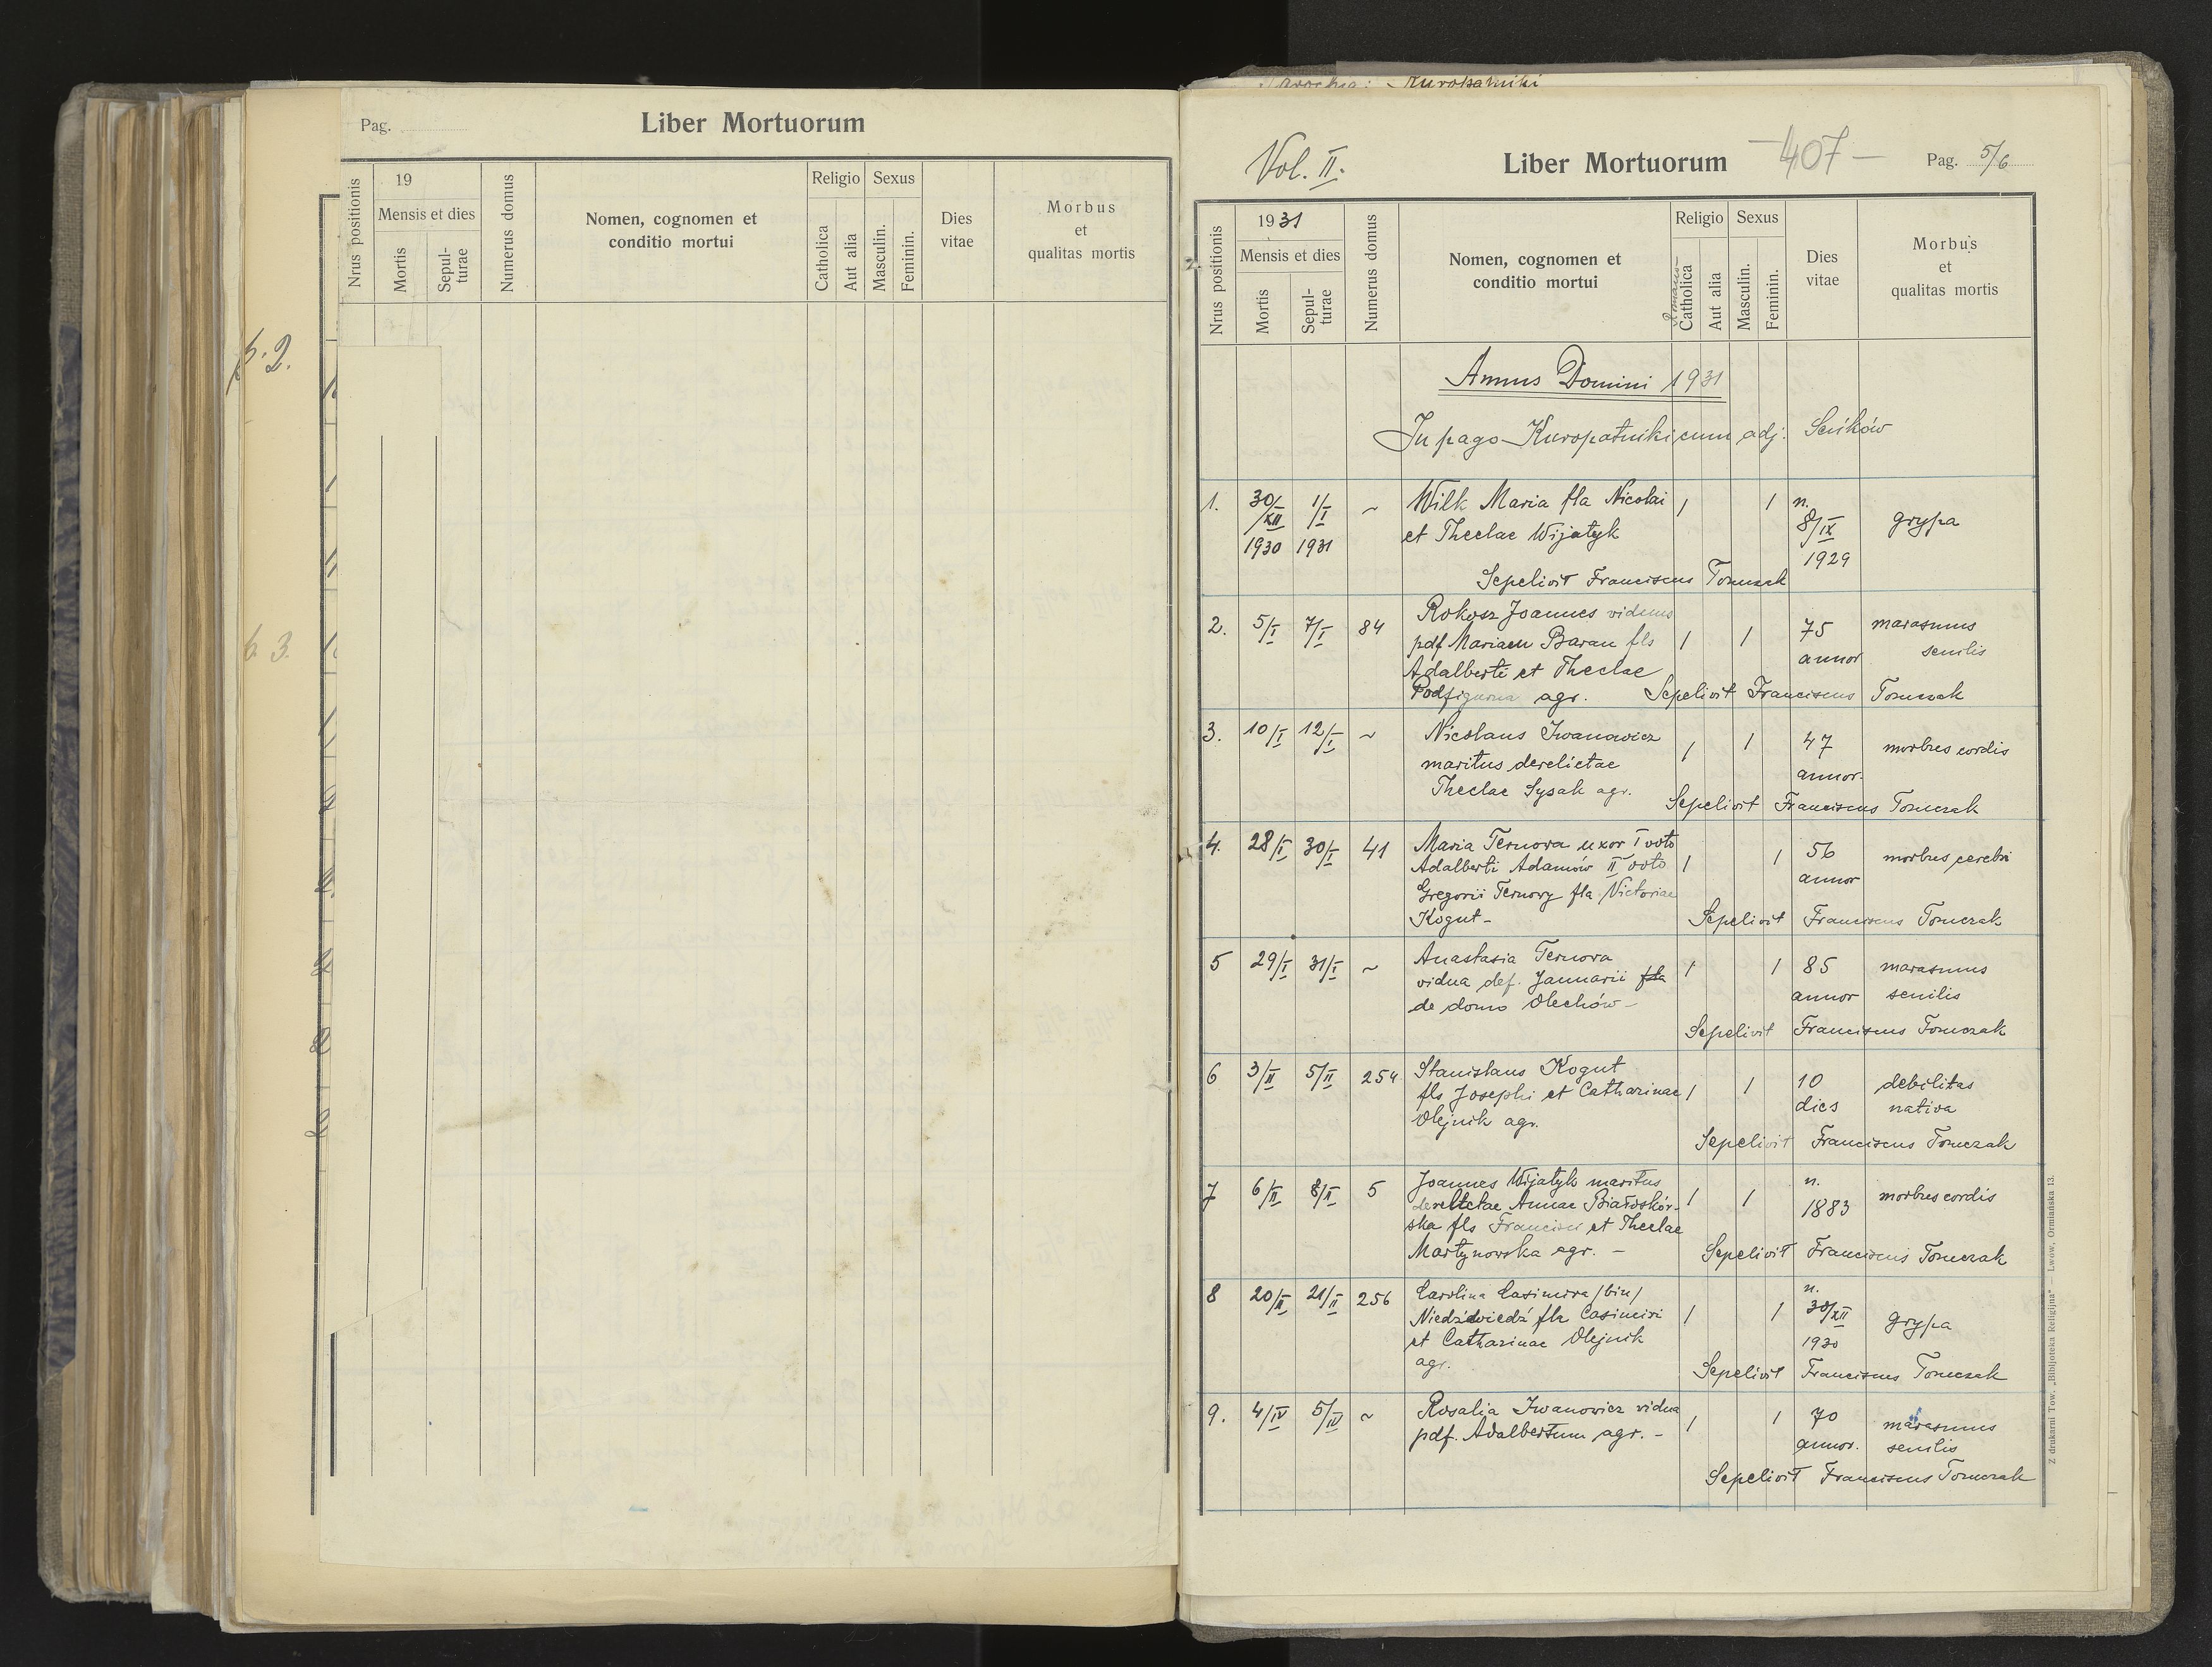 Pag.
Liber Mortuorum
Nrus positionis
19
Mensis et dies
Mortis
Sepul-
turae
Numerus domus
Nomen, cognomen et
conditio mortui
Religio
Catholica
Aut alia
Sexus
Masculin.
Feminin.
Dies
vitae
Morbus
et
qualitas mortis
p. 2.
p. 3.
Parochia: Kuropatniki
Vol. II.
Liber Mortuorum
-407-
Pag. 5/6
Nrus positionis
1931
Mensis et dies
Mortis
Sepul-
turae
Numerus domus
Nomen, cognomen et
conditio mortui
Religio
Romano-
Catholica
Aut alia
Sexus
Masculin.
Feminin.
Dies
vitae
Morbus
et
qualitas mortis
Annus Domini 1931
In pago Kuropatniki cum adj.
1. 30/XII 1/I ~ Wilk Maria fla Nicolai 1 1 n.
1930 1931 et Theclae Wijatyk 8/IX grypa
1929
Sepelivit Franciscus Tomczak
2. 5/I 7/I 84 Rokosz Joannes viduus
pdf Mariam Baran fls 1 1 75 marasmus
Adalberti et Theclae annor senilis
Podfigurna agr. Sepelivit Franciscus Tomczak
3. 10/I 12/I ~ Nicolaus Iwanowicz 1 1 47 morbus cordis
maritus derelictae annor.
Theclae Sysak agr.
Sepelivit Franciscus Tomczak
4. 28/I 30/I 41 Maria Ternova uxor I voto 1 1 56 morbus cerebri
Adalberti Adamów II voto annor
Gregorii Ternovy fla Victoriae
Kogut - Sepelivit Franciscus Tomczak
5 29/I 31/I ~ Anastasia Ternova 1 1 85 marasmus
vidua def. Januarii fla annor senilis
de domo Olechów -
Sepelivit Franciscus Tomczak
6 3/II 5/II 254 Stanislaus Kogut 1 1 10 debilitas
fls Josephi et Catharinae dies nativa
Olejnik agr.
Sepelivit Franciscus Tomczak
7 6/II 8/II 5 Joannes Wijatyk maritus 1 1 n. morbus cordis
derelictae Annae Białoskór- 1883
ska fls Francisci et Theclae
Martynowska agr. - Sepelivit Franciscus Tomczak
8 20/II 21/II 256 Carolina Casimira /bin/ 1 1 n.
Niedźwiedź fla Casimiri 30/XII grypa
et Catharinae Olejnik 1930
agr. Sepelivit Franciscus Tomczak
9. 4/IV 5/IV ~ Rosalia Iwanowicz vidua 1 1 70 marasmus
pdf. Adalbertum agr. - annor. senilis
Sepelivit Franciscus Tomczak
Z drukarni Tow. „Bibljoteka Religijna" — Lwów, Ormiańska 13.